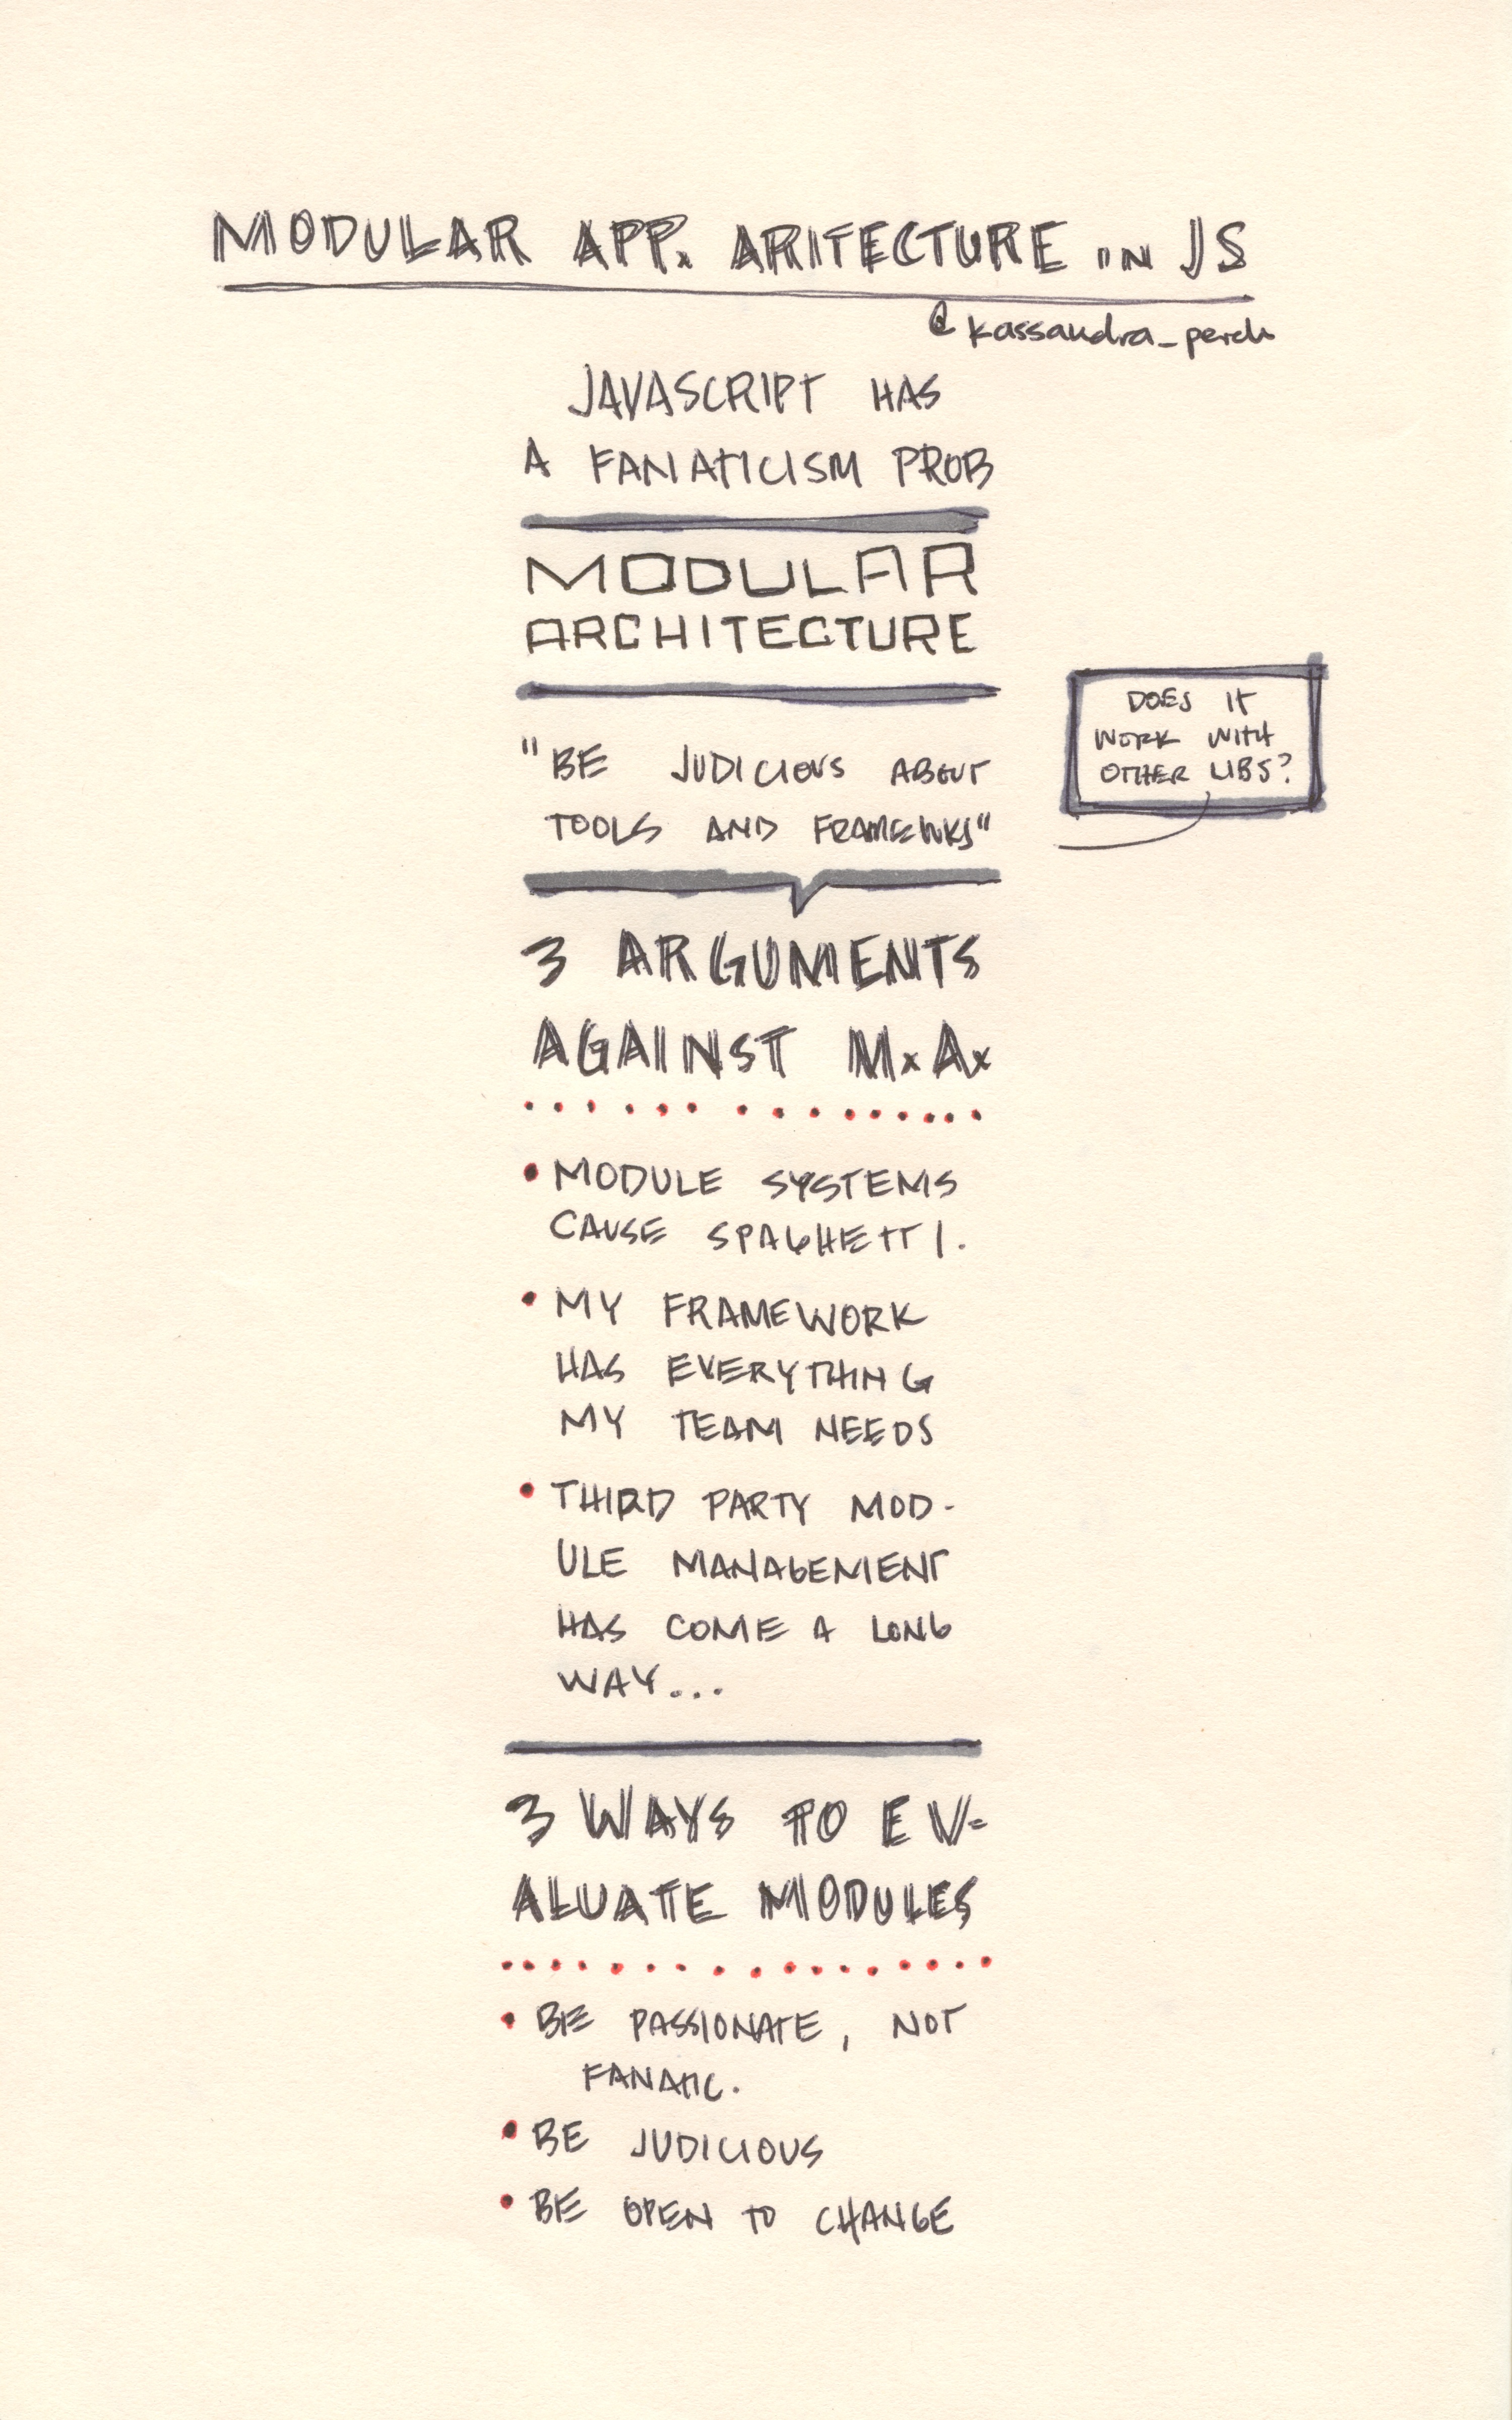 MODULAR APP. ARITECTURE IN JS
@kassandra_perch
JAVASCRIPT HAS
A FANATICISM PROB
MODULAR
ARCHITECTURE
"BE JUDICIOUS ABOUT
TOOLS AND FRAMEWKS"
DOES IT
WORK WITH
OTHER LIBS?
3 ARGUMENTS
AGAINST M.A.
• MODULE SYSTEMS
CAUSE SPAGHETTI.
• MY FRAMEWORK
HAS EVERYTHING
MY TEAM NEEDS
• THIRD PARTY MOD-
ULE MANAGEMENT
HAS COME A LONG
WAY...
3 WAYS TO EV-
ALUATE MODULES
• BE PASSIONATE, NOT
FANATIC.
• BE JUDICIOUS
• BE OPEN TO CHANGE